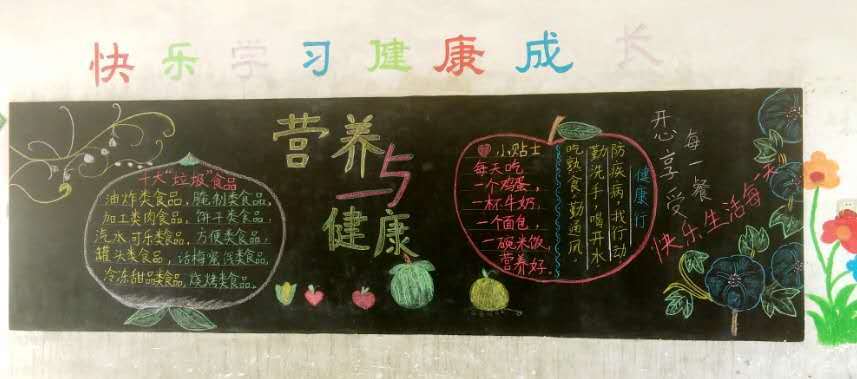 快乐学习健康成长
十大“垃圾”食品
油炸类食品，腌制类食品，
加工类肉食品，饼干类食品，
汽水可乐类食品，方便类食品，
罐头类食品，话梅蜜饯类食品，
冷冻甜品类食品，烧烤类食品。
营养
与
健康
小贴士
每天吃
一个鸡蛋，
一杯牛奶，
一个面包，
一碗米饭，
营养好。
健康行
防疾病，找行动
勤洗手，喝开水，
吃熟食，勤通风。
每一餐
开心享受
快乐生活每一天